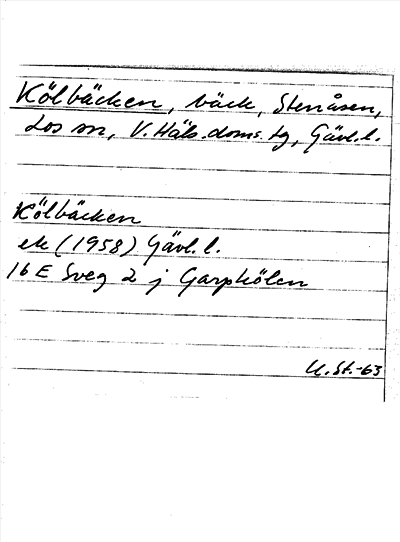 Kölbäcken, bäck, Stenåsen,
Los sn, V. Häls. doms. tg, Gävl. l.
Kölbäcken
ek (1958) Gävl. l.
16 E Sveg 2 j Garpkölen
U. St.-63